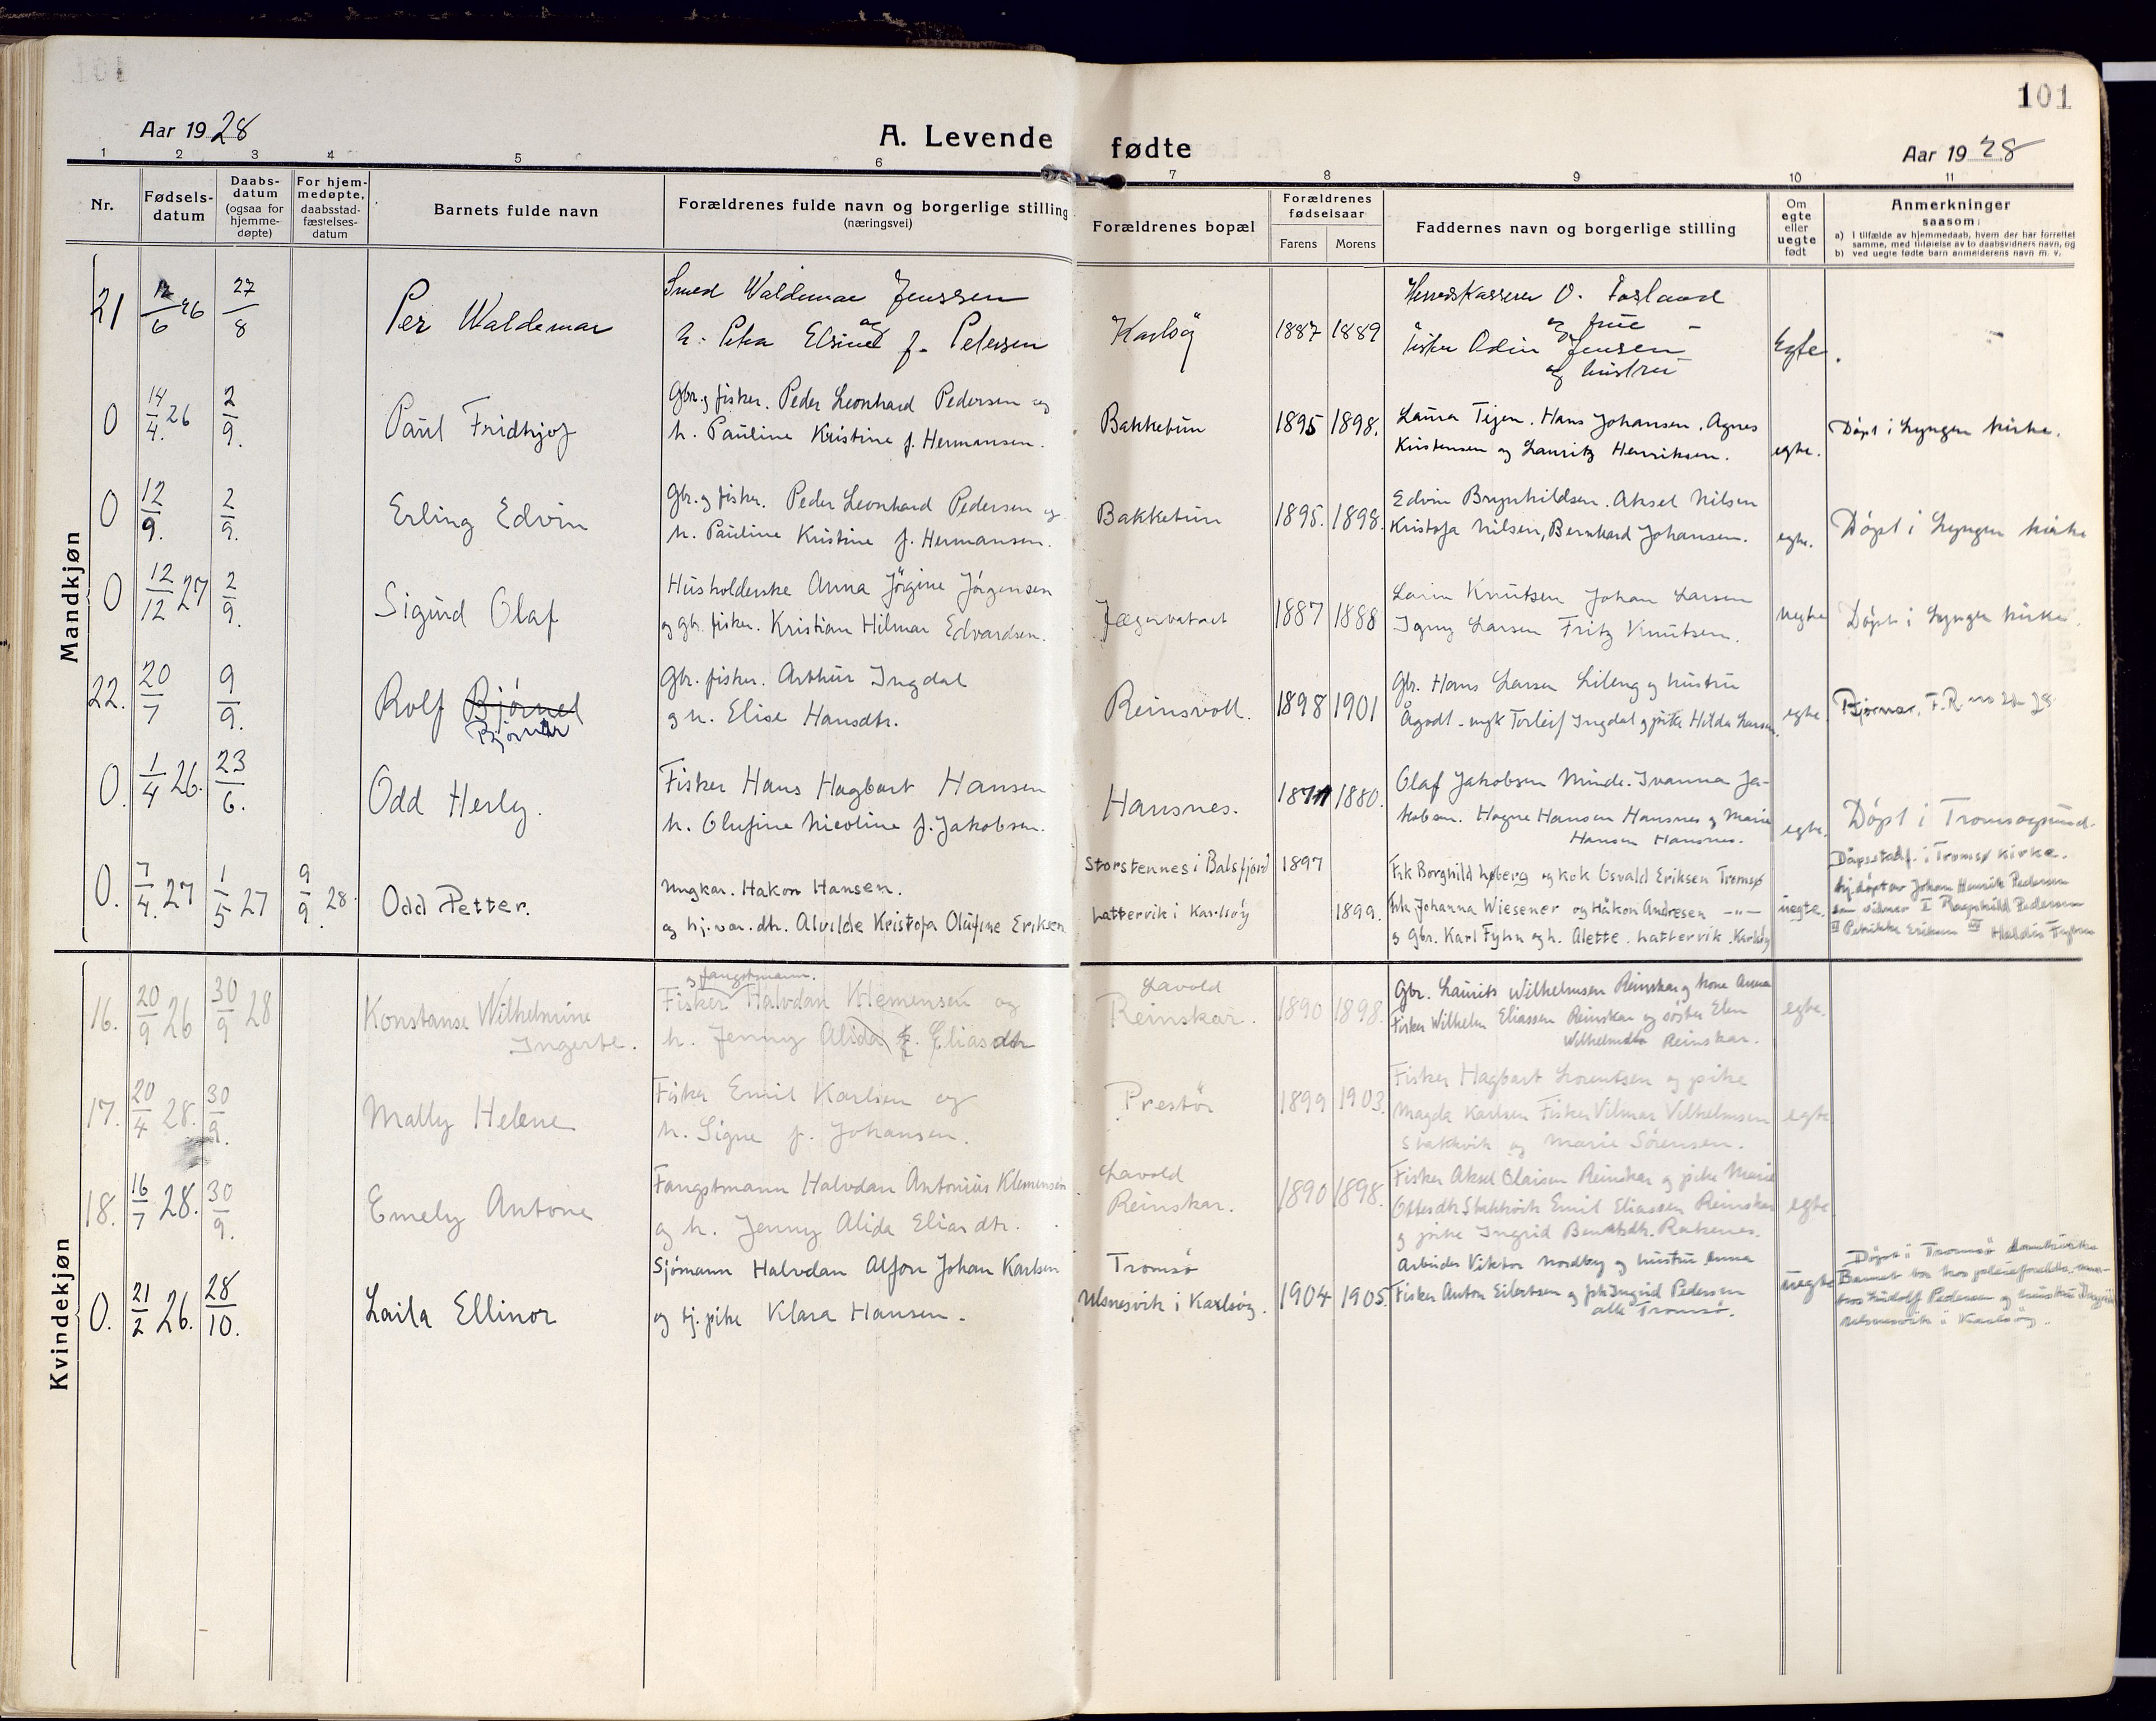 101
Aar 1928
A. Levende fødte
Aar 1928
1 2 3 4 5 6 7 8 9 10 11
Nr.
Fødsels-
datum
Daabs-
datum
(ogsaa for
hjemme-
døpte)
For hjem-
medøpte,
daabsstad-
fæstelses-
datum
Barnets fulde navn
Forældrenes fulde navn og borgerlige stilling
(næringsvei)
Forældrenes bopæl
Forældrenes
fødselsaar
Farens Morens
Faddernes navn og borgerlige stilling
Om
egte
eller
uegte
født
Anmerkninger
saasom:
a) I tilfælde av hjemmedaab, hvem der har forrettet
samme, med tilføielse av to daabsvidners navn, og
b) ved uegte fødte barn anmelderens navn m. v.
Mandkjøn
21 12/6 26 27/8
Per Waldemar
Smed Waldemar Jenssen
og
h. Petra Elsine f. Petersen
Karlsöy
1887 1889
Herredskasserer O. Fosland
og frue
Fisker Odin Jensen
og hustru
Egte.
0 14/4. 26 2/9.
Paul Fridhjof
Gbr. og fisker. Peder Leonhard Pedersen og
h. Pauline Kristine f. Hermansen.
Bakketun
1895 1898.
Laura Tijen. Hans Johansen. Agnes
Kristensen og Lauritz Henriksen.
egte.
Döpt i Lyngen kirke.
0 12/9. 2/9.
Erling Edvin
Gbr. og fisker. Peder Leonhard Pedersen og
h. Pauline Kristine f. Hermansen.
Bakketun
1895. 1898.
Edvin Brynhildsen. Aksel Nilsen
Kristofa Nilsen, Bernhard Johansen.
egte.
Döpt i Lyngen kirke
0 12/12 27 2/9.
Sigurd Olaf
Husholderske Anna Jörgine Jörgensen
og gbr. fisker. Kristian Hilmar Edvardsen.
Jægervatnet
1887 1888
Larin Knutsen Johan Larsen
Larsen Fritz Knutsen.
uegte
Döpt i Lyngen kirke.
22. 20/7 9/9.
Rolf Bjørnel
Bjørnar
Gbr. fisker. Arthur Ingdal
og h. Elise Hansdtr.
Reinsvoll.
1898 1901
Gbr. Hans Larsen Lileng og hustru
Ågodt. ungk Torleif Ingdal og pike Hilda Larsen.
egte
Bjørnar, F.R.
0. 1/4 26. 23/6.
Odd Herly.
Fisker Hans Hagbart Hansen
h. Olufine Nicoline f. Jakobsen.
Hansnes.
1880.
Olaf Jakobsen Minde. Ivanna Ja-
kobsen. Hagne Hansen Hansnes og Marie
Hansen Hansnes.
egte.
Döpt i Tromsøysund.
0. 7/4. 27 1/5 27 9/9. 28.
Odd Petter.
Ungkar. Hakon Hansen.
og hj.vær. dtr. Alvilde Kristofa Olufine Eriksen
Storstennes i Balsfjord
Lattervik i Karlsöy
1897
1899.
Frk Borghild Høberg og kok Osvald Eriksen Tromsø
Frk. Johanna Wiesener og Håkon Andresen –"–
og Gbr. Karl Fyhn og h. Alette. Lattervik. Karlsöy
uegte.
Dåpsstadf. i Tromsø kirke.
hj.døpt av Johan Henrik Pedersen
som vidner I Ragnhild Pedersen
II Petrikke Eriksen III Haldis Fyhn
Kvindekjøn
16. 20/9 26 30/9 28
Konstanse Wilhelmine
Ingerte.
og fangstmann.
Fisker Halvdan Klemensen og
h. Jenny Alida f. Eliasdtr
Lavold
Reinskar.
1890 1898.
Gbr. Laurits Wilhelmsen Reinskar og kone Anna
Fisker Wilhelm Eliassen Reinskar og søster Elen
Wilhelmdtr Reinskar.
egte.
17. 20/4 28. 30/9.
Mally Helene
Fisker Emil Karlsen og
h. Signe f. Johansen.
Prestör
1899 1903.
Fisker Hagbart Lorentsen og pike
Magda Karlsen Fisker Vilmar Vilhelmsen
Stakkvik og Marie Sörensen.
egte
18. 16/7 28. 30/9.
Emely Antone
Fangstmann Halvdan Antonius Klemensen
og h. Jenny Alida Eliasdtr.
Lavold
Reinskar.
1890 1898.
Fisker Aksel Olaisen Reinskar og pike Marie
Ottesdtr. Stakkvik Emil Eliassen Reinskar
og pike Ingrid Berntsdtr. Rakenes.
egte
0. 21/2 26. 28/10.
Laila Ellinor
Sjömann Halvdan Alfon Johan Karlsen
og tj. pike Klara Hansen.
Tromsø
Ulsnesvik i Karlsøy.
1904 1905.
Arbeider Viktor Nordby og hustru Anna
Fisker Anton Eilertsen og frk Ingrid Pedersen
alle Tromsø.
uegte
Döpt i Tromsö domkirke
Barnet bor hos pleieforeldre
hos Ludolf Pedersen og hustru Dagrid
Ulsnesvik i Karlsöy.